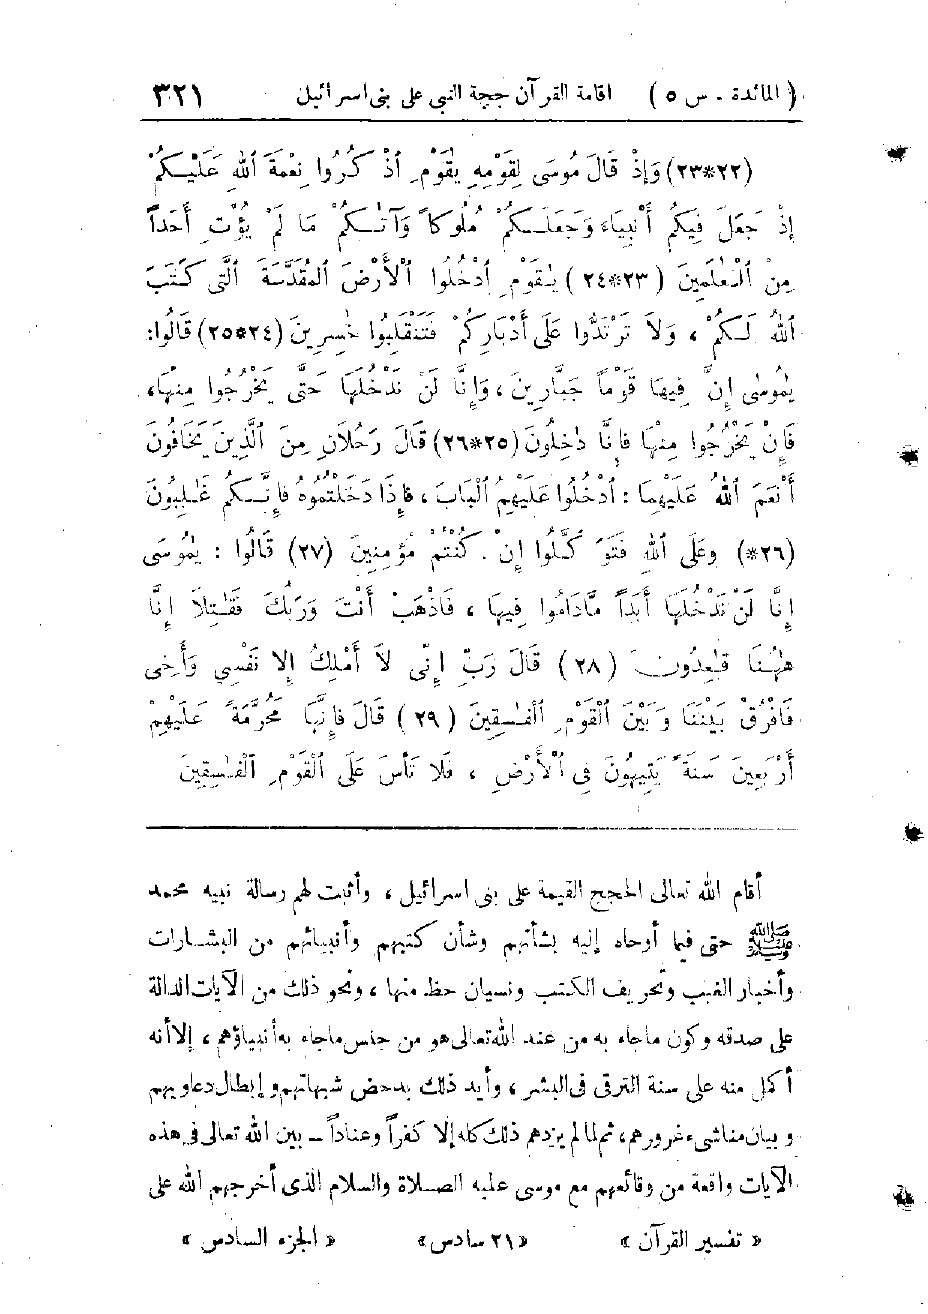 ( المائدة . س ٥ ) اقامة القرآن حجة النبي على بنى اسرائيل ٣٢١
(٢٢*٢٣) وَإِذْ قَالَ مُوسَى لِقَوْمِهِ يٰقَوْمِ اذْكُرُوا نِعْمَةَ اللهِ عَلَيْكُمْ
إِذْ جَعَلَ فِيكُمْ أَنْبِيَاءَ وَجَعَلَكُمْ مُلُوكاً وَآتٰكُمْ مَا لَمْ يُؤْتِ أَحَداً
مِنَ الْعٰلَمِينَ (٢٣*٢٤) يٰقَوْمِ ادْخُلُوا الْأَرْضَ المُقَدَّسَةَ الَّتِى كَتَبَ
اللهُ لَكُمْ ، وَلاَ تَرْتَدُّوا عَلَى أَدْبَارِكُمْ فَتَنْقَلِبُوا خٰسِرِينَ (٢٤*٢٥) قَالُوا:
يٰمُوسَى إِنَّ فِيهَا قَوْماً جَبَّارِينَ ، وَإِنَّا لَنْ نَدْخُلَهَا حَتَّى يَخْرُجُوا مِنْهَا،
فَإِنْ يَخْرُجُوا مِنْهَا فَإِنَّا دٰخِلُونَ (٢٥*٢٦) قَالَ رَجُلاَنِ مِنَ الَّذِينَ يَخَافُونَ
أَنْعَمَ اللهُ عَلَيْهِمَا : ادْخُلُوا عَلَيْهِمُ الْبَابَ ، فَإِذَا دَخَلْتُمُوهُ فَإِنَّكُم غٰلِبُونَ
(٢٦*) وعَلَى اللهِ فَتَوَكَّلُوا إِنْ كُنْتُمْ مُؤمِنِينَ (٢٧) قَالُوا : يٰمُوسَى
إِنَّا لَنْ نَدْخُلَهَا أَبَداً مَّادَامُوا فِيهَا ، فَاذْهَبْ أَنْتَ وَرَبُّكَ فَقٰتِلاَ إِنَّا
هٰهُنَا قٰعِدُونَ (٢٨) قَالَ رَبِّ إِنِّى لاَ أَمْلِكُ إِلا نَفْسِى وَأَخِى
فَافْرُقْ بَيْنَنَا وَبَيْنَ الْقَوْمِ الْفٰسِقِينَ (٢٩) قَالَ فَإِنَّهَا مُحَرَّمَةٌ عَلَيْهِمْ
أَرْبَعِينَ سَنَةً يَتِيهُونَ فِى الْأَرْضِ ، فَلا تَأْسَ عَلَى الْقَوْمِ الْفٰسِقِينَ
أقام الله تعالى الحجج القيمة على بنى اسرائيل ، وأثبت لهم رسالة نبيه محمد
ﷺ حتى فيما أوحاه إليه بشأنهم وشأن كتبهم وأنبيائهم من البشارات
وأخبار الغيب وتحريف الكتب ونسيان حظ منها ، ونحو ذلك من الآيات الدالة
على صدقه وكون ماجاء به من عند الله تعالى هو من جنس ماجاء به أنبياؤهم ، إلا أنه
أكمل منه على سنة الترقى فى البشر ، وأيد ذلك بدحض شبهاتهم وإبطال دعاويهم
وبيان مناشىء غرورهم ، ثم لما لم يزدهم ذلك كله إلا كفراً وعناداً – بين الله تعالى فى هذه
الآيات واقعة من وقائعهم مع موسى عليه الصلاة والسلام الذى أخرجهم الله على
« تفسير القرآن » « ٢١ سادس » « الجزء السادس »